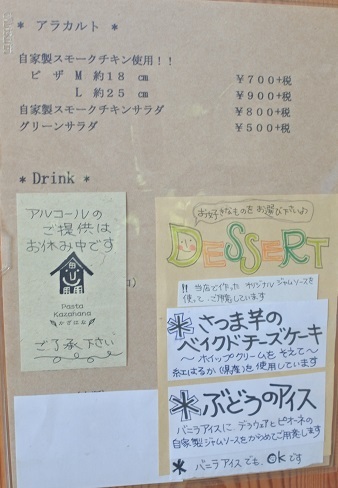 * アラカルト *
自家製スモークチキン使用！！
ピザ M 約18 cm ￥700+税
L 約25 cm ￥900+税
自家製スモークチキンサラダ ￥800+税
グリーンサラダ ￥500+税
* Drink *
アルコールの
ご提供は
お休み中です
Pasta
Kazahana
かざはな
ご了承下さい
お好きなものをお選び下さい♪
DESSERT
!! 当店で作った オリジナルジャムソースを
使って、ご用意しています
* さつま芋の
ベイクドチーズケーキ
〜ホイップクリームをそえて〜
紅はるか(県産)を使用しています
* ぶどうのアイス
バニラアイスに、デラウェアとピオーネの
自家製ジャムソースをからめてご用意します
* バニラアイスでも、OKです